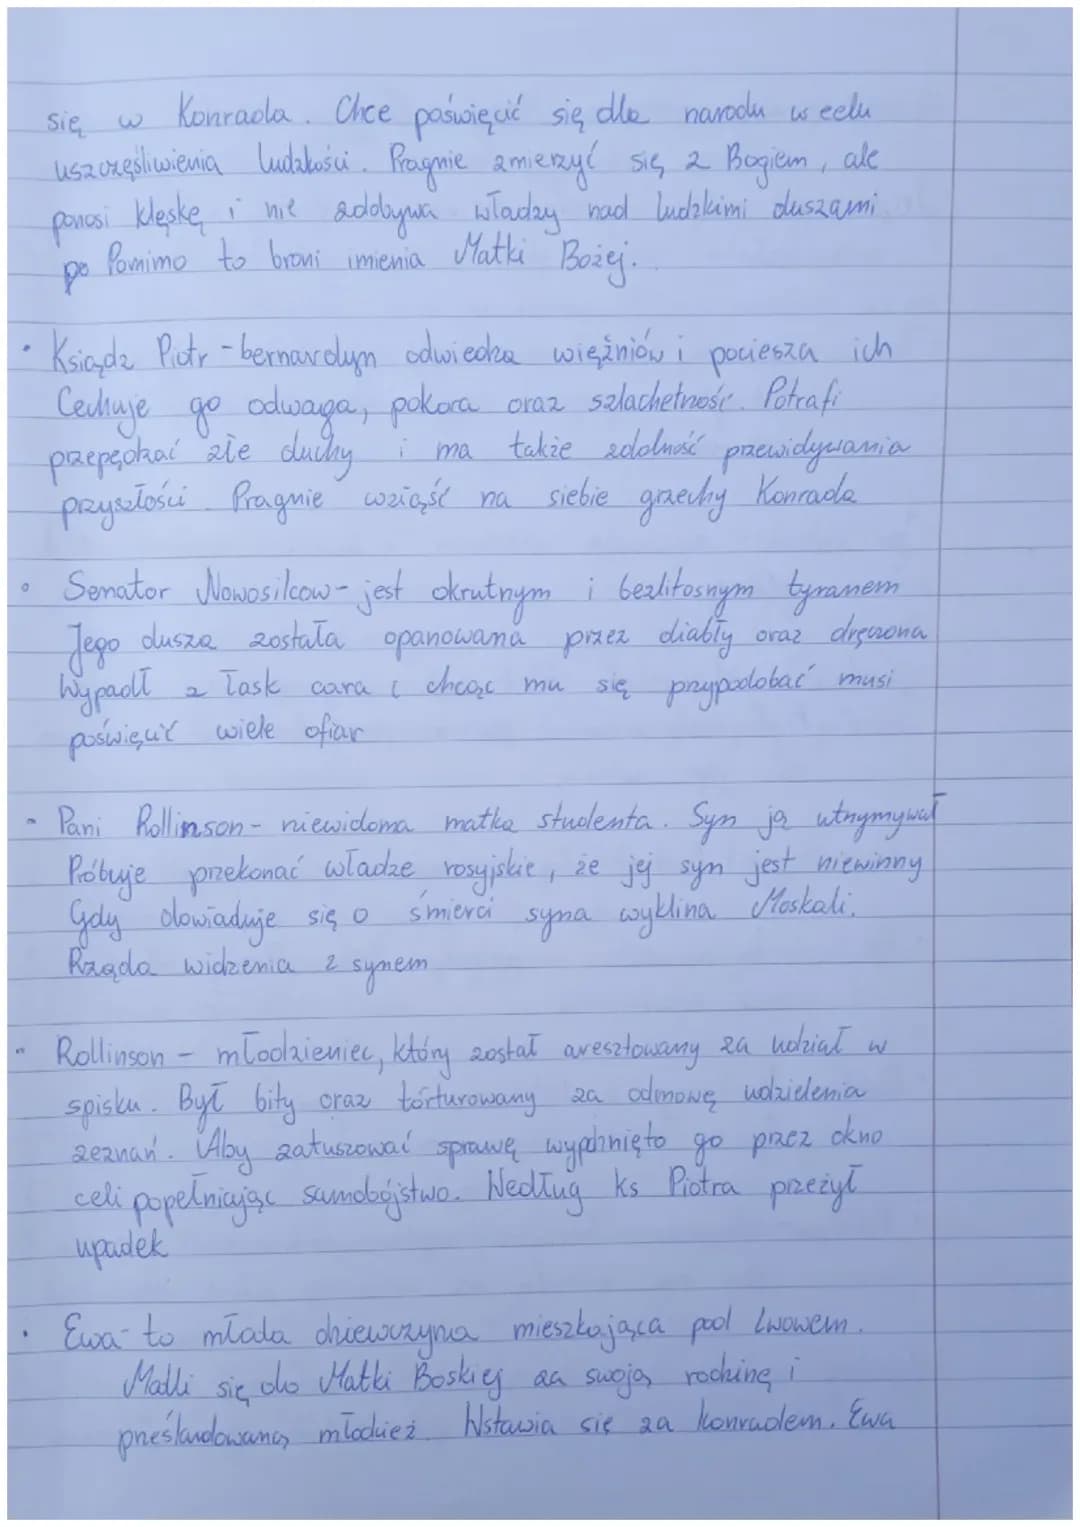 się w Konrada. Chce poświęcić się dla narodu w celu
uszczęśliwienia ludzkości. Pragnie zmierzyć się z Bogiem, ale
ponosi klęskę i nie zdobywa władzy nad ludzkimi duszami
po Pomimo to broni imienia Matki Bożej.
• Ksiądz Piotr - bernardyn odwiedza więźniów i pociesza ich
Cechuje go odwaga, pokora oraz szlachetność. Potrafi
przepędzać złe duchy i ma także zdolność przewidywania
przyszłości. Pragnie wziąść na siebie grzechy Konrada
• Senator Nowosilcow - jest okrutnym i bezlitosnym tyranem
Jego dusza została opanowana przez diabły oraz dręczona
Wypadł z łask cara i chcąc mu się przypodobać musi
poświęcić wiele ofiar
- Pani Rollinson - niewidoma matka studenta. Syn ją utrzymywał
Próbuje przekonać władze rosyjskie, że jej syn jest niewinny
Gdy dowiaduje się o śmierci syna wyklina Moskali.
Rząda widzenia z synem
- Rollinson - młodzieniec, który został aresztowany za udział w
spisku. Był bity oraz torturowany za odmowę udzielenia
zeznań. Aby zatuszować sprawę wypchnięto go przez okno
celi popełniając samobójstwo. Według ks Piotra przeżył
upadek
• Ewa - to młada dziewczyna mieszkająca pod Lwowem.
Modli się do Matki Boskiej za swoją rodzinę i
prześladowaną młodzież. Wstawia się za Konradem. Ewa